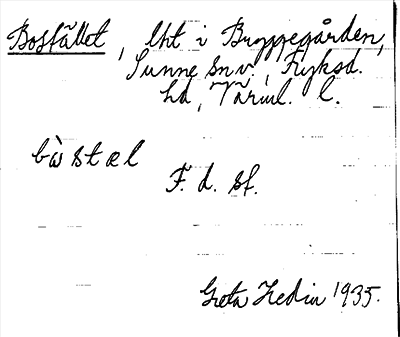 Bosfället, lht i Bryggegården,
Sunne sn.v., Fryksd.
hd, Värml. l.
bò stæl
F. d. sf.
Greta Hedin 1935.